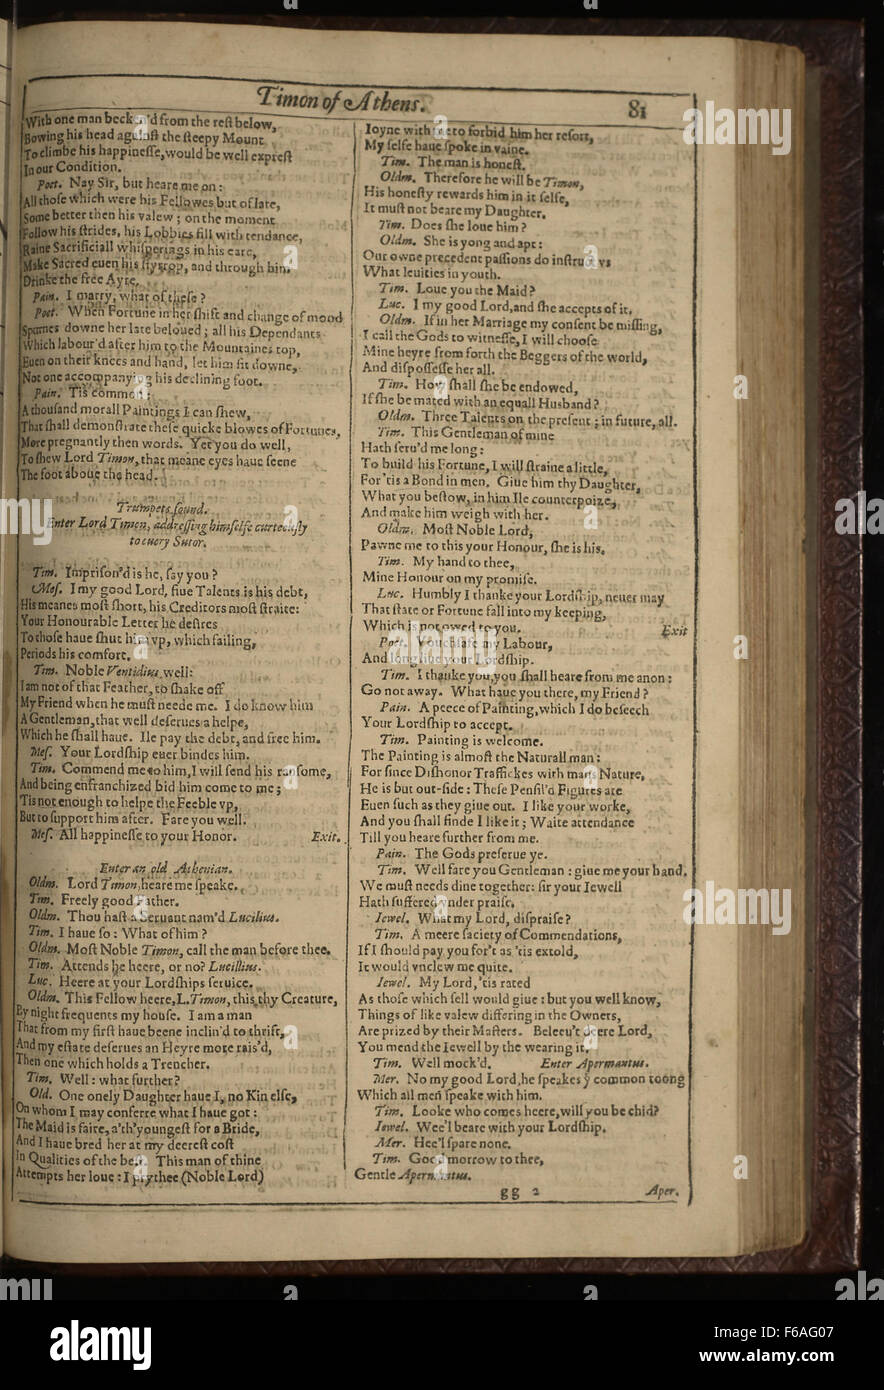 Timon of Athens. 81
With one man beckn'd from the rest below,
Bowing his head against the steepy Mount
To climbe his happinesse, would be well exprest
In our Condition.
Poet. Nay Sir, but heare me on:
All those which were his Fellowes but of late,
Some better then his valew; on the moment
Follow his strides, his Lobbies fill with tendance,
Raine Sacrificiall whisperings in his eare,
Make Sacred euen his styrrop, and through him
Drinke the free Ayre.
Pain. I marry, what of these?
Poet. When Fortune in her shift and change of mood
Spurnes downe her late beloued; all his Dependants
Which labour'd after him to the Mountaines top,
Euen on their knees and hand, let him sit downe,
Not one accompanying his declining foot.
Pain. Tis common:
A thousand morall Paintings I can shew,
That shall demonstrate these quicke blowes of Fortunes,
More pregnantly then words. Yet you do well,
To shew Lord Timon, that meane eyes haue seene
The foot aboue the head.
Trumpets sound.
Enter Lord Timon, addressing himselfe curteously
to euery Sutor.
Tim. Imprison'd is he, say you?
Mes. I my good Lord, fiue Talents is his debt,
His meanes most short, his Creditors most straite:
Your Honourable Letter he desires
To those haue shut him vp, which failing,
Periods his comfort.
Tim. Noble Ventidius well:
I am not of that Feather, to shake off
My Friend when he must neede me. I do know him
A Gentleman, that well deserues a helpe,
Which he shall haue. Ile pay the debt, and free him.
Mes. Your Lordship euer bindes him.
Tim. Commend me to him, I will send his ransome,
And being enfranchized bid him come to me;
Tis not enough to helpe the Feeble vp,
But to support him after. Fare you well.
Mes. All happinesse to your Honor. Exit.
Enter an old Athenian.
Oldm. Lord Timon, heare me speake.
Tim. Freely good Father.
Oldm. Thou hast a Seruant nam'd Lucilius.
Tim. I haue so: What of him?
Oldm. Most Noble Timon, call the man before thee.
Tim. Attends he heere, or no? Lucillius.
Luc. Heere at your Lordships seruice.
Oldm. This Fellow heere, L. Timon, this thy Creature,
By night frequents my house. I am a man
That from my first haue beene inclin'd to thrift,
And my estate deserues an Heyre more rais'd,
Then one which holds a Trencher.
Tim. Well: what further?
Old. One onely Daughter haue I, no Kin else,
On whom I may conferre what I haue got:
The Maid is faire, a'th'youngest for a Bride,
And I haue bred her at my deerest cost
In Qualities of the best. This man of thine
Attempts her loue: I prythee (Noble Lord)
Ioyne with me to forbid him her resort,
My selfe haue spoke in vaine.
Tim. The man is honest.
Oldm. Therefore he will be Timon,
His honesty rewards him in it selfe,
It must not beare my Daughter.
Tim. Does she loue him?
Oldm. She is yong and apt:
Our owne precedent passions do instruct vs
What leuities in youth.
Tim. Loue you the Maid?
Luc. I my good Lord, and she accepts of it.
Oldm. If in her Marriage my consent be missing,
I call the Gods to witnesse, I will choose
Mine heyre from forth the Beggers of the world,
And dispossesse her all.
Tim. How shall she be endowed,
If she be mated with an equall Husband?
Oldm. Three Talents on the present; in future, all.
Tim. This Gentleman of mine
Hath seru'd me long:
To build his Fortune, I will straine a little,
For 'tis a Bond in men. Giue him thy Daughter,
What you bestow, in him Ile counterpoize,
And make him weigh with her.
Oldm. Most Noble Lord,
Pawne me to this your Honour, she is his.
Tim. My hand to thee,
Mine Honour on my promise.
Luc. Humbly I thanke your Lordship, neuer may
That state or Fortune fall into my keeping,
Which is not owed to you. Exit
Poet. Vouchsafe my Labour,
And long liue your Lordship.
Tim. I thanke you, you shall heare from me anon:
Go not away. What haue you there, my Friend?
Pain. A peece of Painting, which I do beseech
Your Lordship to accept.
Tim. Painting is welcome.
The Painting is almost the Naturall man:
For since Dishonor Traffickes with mans Nature,
He is but out-side: These Pensil'd Figures are
Euen such as they giue out. I like your worke,
And you shall finde I like it; Waite attendance
Till you heare further from me.
Pain. The Gods preserue ye.
Tim. Well fare you Gentleman: giue me your hand.
We must needs dine together: sir your Iewell
Hath suffered vnder praise.
Iewel. What my Lord, dispraise?
Tim. A meere saciety of Commendations,
If I should pay you for't as 'tis extold,
It would vnclew me quite.
Iewel. My Lord, 'tis rated
As those which sell would giue: but you well know,
Things of like valew differing in the Owners,
Are prized by their Masters. Beleeu't deere Lord,
You mend the Iewell by the wearing it.
Tim. Well mock'd. Enter Apermantus.
Mer. No my good Lord, he speakes y common toong
Which all men speake with him.
Tim. Looke who comes heere, will you be chid?
Iewel. Wee'l beare with your Lordship.
Mer. Hee'l spare none.
Tim. Good morrow to thee,
Gentle Apermantus.
gg 2 Aper.
alamy
alamy
Image ID: F6AG07
www.alamy.com